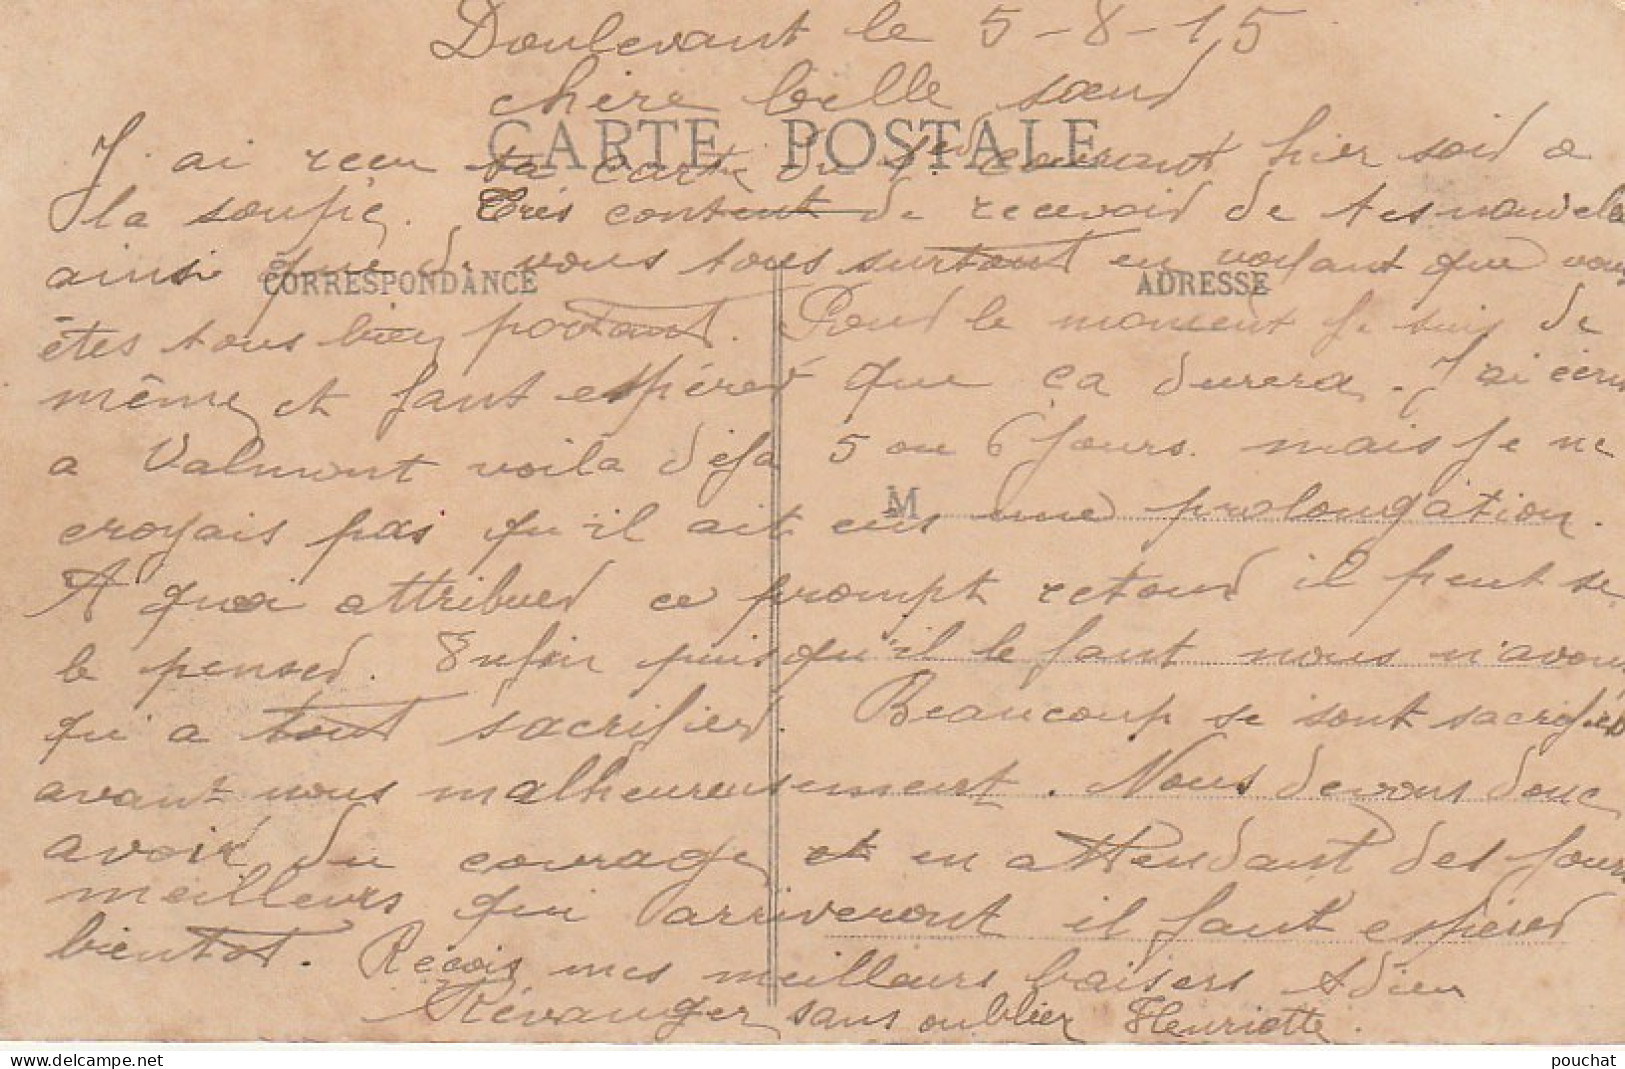 Doulevant le 5-8-15
chère belle sœur
CARTE POSTALE
J'ai reçu ta carte du 1er courant hier soir a
la soupe. Très content de recevoir de tes nouvelles
ainsi que de vous tous surtout en voyant que vous
CORRESPONDANCE ADRESSE
êtes tous bien portant. Pour le moment je suis de
même et faut espérer que ça durera. J'ai écris
a Valmont voila déja 5 ou 6 jours. mais je ne
M
croyais pas qu'il ait eus une prolongation.
A quoi attribuer ce prompt retour il peut se
le penser. Enfin puisqu'il le faut nous n'avons
qu'a tout sacrifier. Beaucoup se sont sacrifiés
avant nous malheureusement. Nous devons donc
avoir du courage et en attendant des jours
meilleurs qui arriveront il faut espérer
bientot. Reçois mes meilleurs baisers Adieu
Révanger sans oublier Henriette.
pouchat